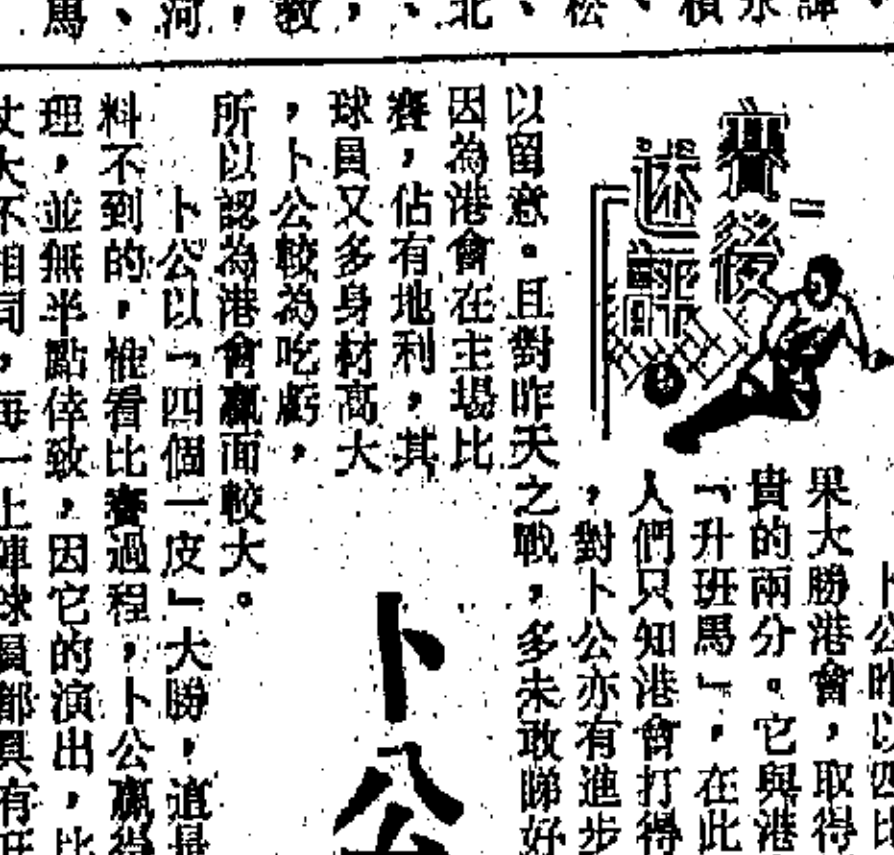 馬、河,教,、北、松、積永譚、
賽後
述評
卜公昨以四比
果大勝港會,取得
貴的兩分。它與港
「升班馬」,在此
人們只知港會打得
,對卜公亦有進步
以留意。且對昨天之戰,多未敢睇好
因為港會在主場比
賽,佔有地利,其
球員又多身材高大
,卜公較為吃虧,
所以認為港會贏面較大。
卜公
卜公以「四個一皮」大勝,這是
料不到的,惟看比賽過程,卜公贏得
理,並無半點倖致,因它的演出,比
大不相同,每一上陣球員都具有旺